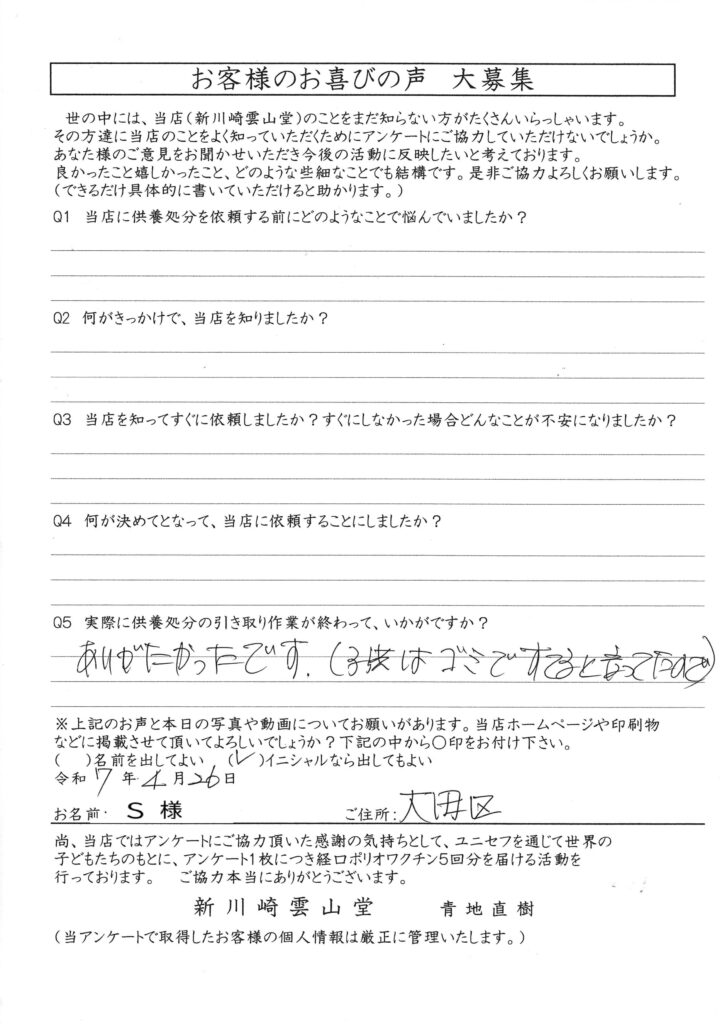 お客様のお喜びの声　大募集
世の中には、当店(新川崎雲山堂)のことをまだ知らない方がたくさんいらっしゃいます。
その方達に当店のことをよく知っていただくためにアンケートにご協力していただけないでしょうか。
あなた様のご意見をお聞かせいただき今後の活動に反映したいと考えております。
良かったこと嬉しかったこと、どのような些細なことでも結構です。是非ご協力よろしくお願いします。
(できるだけ具体的に書いていただけると助かります。)
Q1　当店に供養処分を依頼する前にどのようなことで悩んでいましたか？
Q2　何がきっかけで、当店を知りましたか？
Q3　当店を知ってすぐに依頼しましたか？すぐにしなかった場合どんなことが不安になりましたか？
Q4　何が決めてとなって、当店に依頼することにしましたか？
Q5　実際に供養処分の引き取り作業が終わって、いかがですか？
ありがたかったです.(子供はゴミですてると言ってたので)
※上記のお声と本日の写真や動画についてお願いがあります。当店ホームページや印刷物
などに掲載させて頂いてよろしいでしょうか？下記の中から〇印をお付け下さい。
(　)名前を出してよい　(レ)イニシャルなら出してもよい
令和 7 年 4 月 26 日
お名前・　S 様　ご住所:大田区
尚、当店ではアンケートにご協力頂いた感謝の気持ちとして、ユニセフを通じて世界の
子どもたちのもとに、アンケート1枚につき経口ポリオワクチン5回分を届ける活動を
行っております。　ご協力本当にありがとうございます。
新川崎雲山堂　青地直樹
(当アンケートで取得したお客様の個人情報は厳正に管理いたします。)